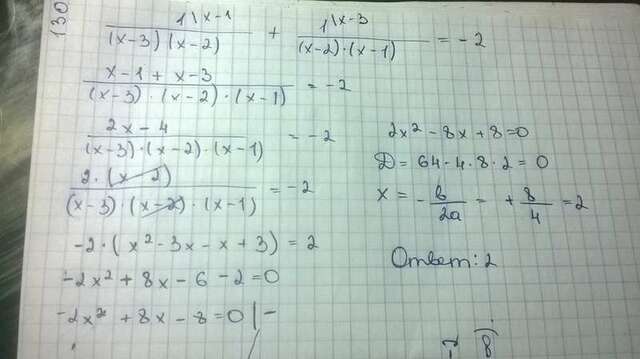 130
1\x-1 / (x-3)(x-2) + 1\x-3 / (x-2)·(x-1) = -2
x-1+x-3 / (x-3)·(x-2)·(x-1) = -2
2x-4 / (x-3)·(x-2)·(x-1) = -2
2·(x-2) / (x-3)·(x-2)·(x-1) = -2
-2·(x²-3x-x+3) = 2
-2x²+8x-6-2=0
-2x²+8x-8=0 |-
2x²-8x+8=0
D=64-4·8·2=0
x = -b/2a = +8/4 = 2
Ответ: 2